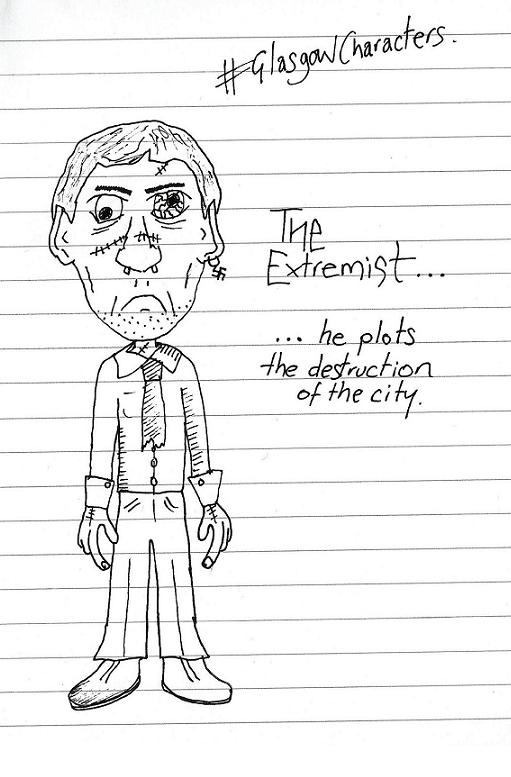 #GlasgowCharacters.
The
Extremist...
... he plots
the destruction
of the city.